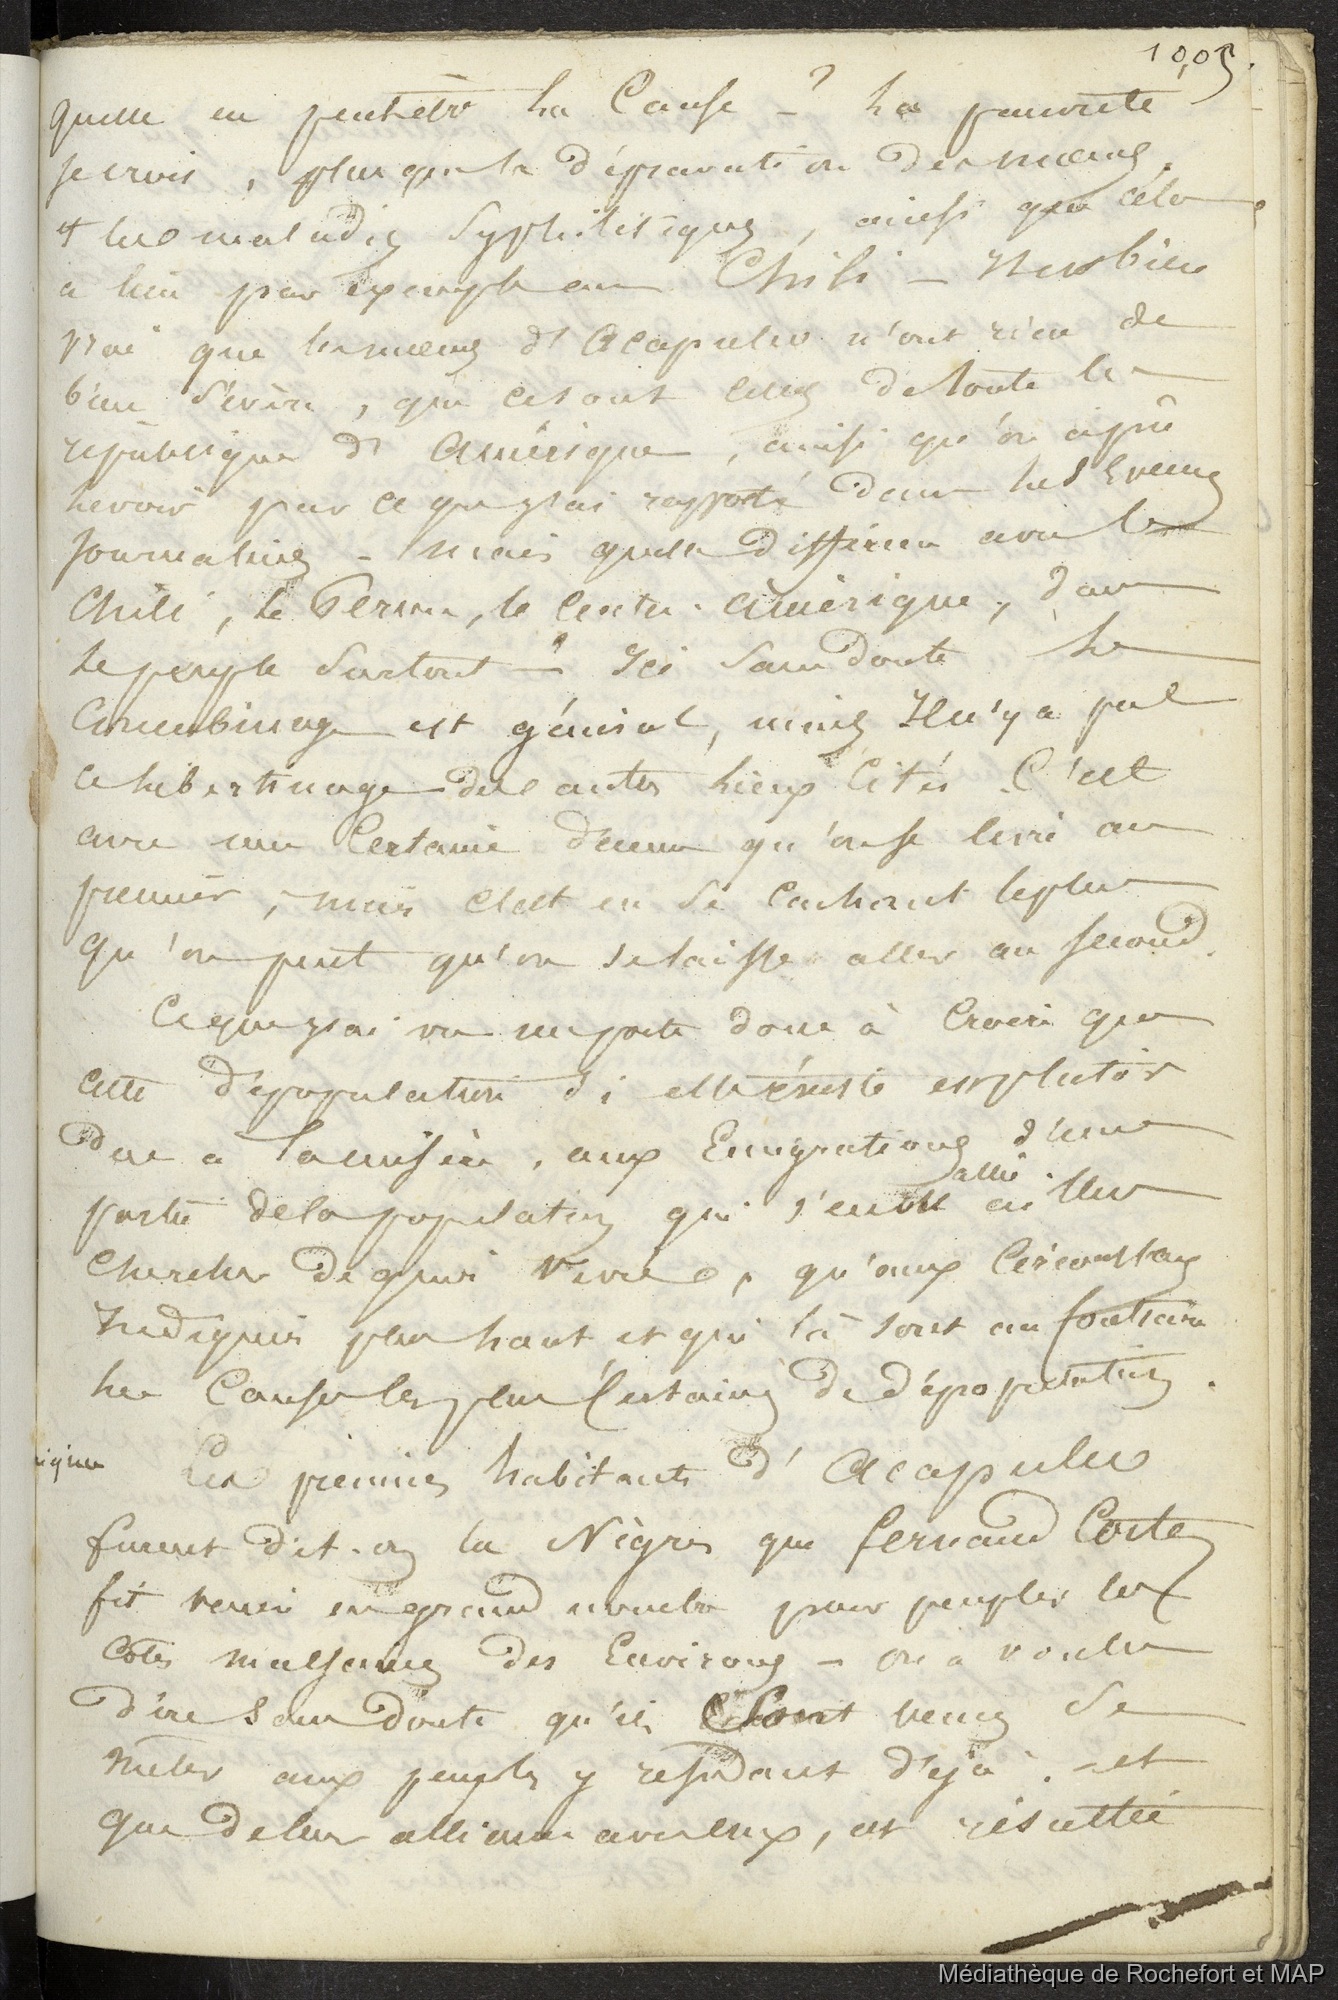 1005.
quelle en peut être la Cause - ? La pauvreté
je crois, plus que la dépravation des mœurs
et les maladies Syphilitiques, ainsi que cela
a lieu par exemple au Chili - Il est bien
vrai que les mœurs d'Acapulco n'ont rien de
bien sévère, que ce sont celles de toute la
république d'Amérique, ainsi qu'on a pu
le voir par ce que j'ai rapporté dans les Evens
journaliers - mais quelle différence avec le
Chili, le Pérou, le Centre-Amérique, dans
le peuple surtout - ? Ici sans doute le
Concubinage est général, mais Il n'y a pas
ce libertinage des autres lieux Cités. C'est
avec une Certaine décence qu'on se livre au
premier, mais c'est en se Cachant le plus
qu'on peut qu'on se laisse aller au second.
Ce que j'ai vu me porte donc à Croire que
cette dépopulation si elle existe est plutôt
due a la misère, aux Emigrations d'une
partie de la population qui s'en est allée ailleurs
Chercher de quoi vivre, qu'aux Circonstances
Indiquées plus haut et qui là sont au Contraire
les Causes les plus Certaines de dépopulation.
Les premiers habitants d'Acapulco
furent dit-on les Nègres que fernand Cortez
fit venir en grand nombre pour peupler les
Côtes malsaines des Environs - on a voulu
dire sans doute qu'ils sont venus se
mêler aux peuples y résidant déjà. - et
que de leur alliance avec eux, est résultée
Médiathèque de Rochefort et MAP